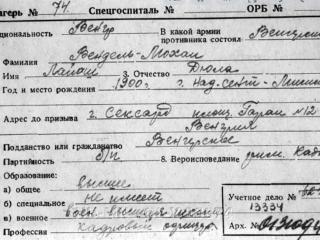 агерь № 74. Спецгоспиталь № ОРБ №
циональность Венгр В какой армии
противника состоял Венгерс
Вендель-Мохаи
Имя Лайош 3. Отчество Дюла
Год и место рождения 1900г. г. Над-Сент-
Адрес до призыва г. Сексард площ. Гараи №12
Венгрия
Подданство или гражданство Венгерское
Партийность б/п 8. Вероисповедание рим. Кат
Образование:
а) общее высшее
б) специальное не имеет
в) военное воен. высшая школа
Профессия Кадровый офицер
Учетное дело №
13334
Арх. №